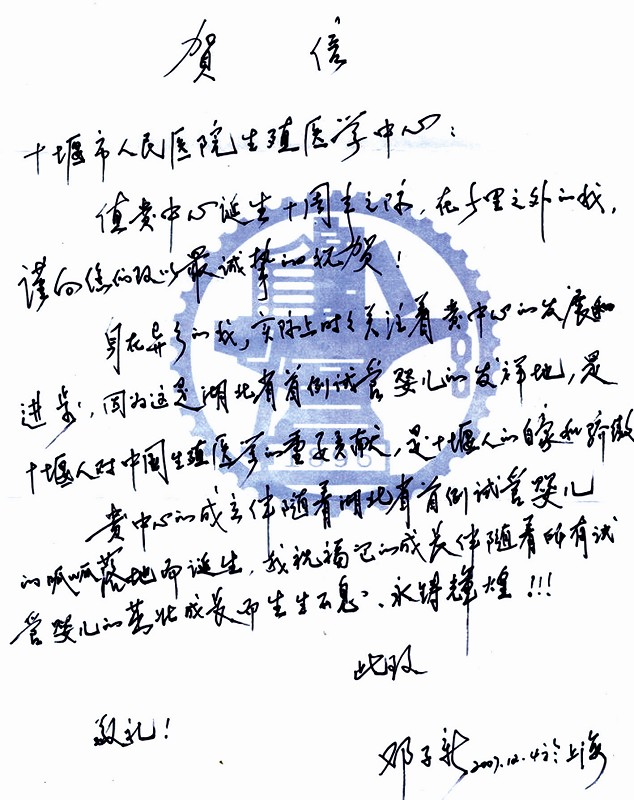 贺 信
十堰市人民医院生殖医学中心：
值贵中心诞生十周年之际，在千里之外的我，
谨向您们致以最诚挚的祝贺！
身在异乡的我，实际上时时关注着贵中心的发展和
进步，因为这是湖北省首例试管婴儿的发祥地，是
十堰人对中国生殖医学的重要贡献，是十堰人的自豪和骄傲
贵中心的成立伴随着湖北省首例试管婴儿
的呱呱落地而诞生，我祝福它的成长伴随着所有试
管婴儿的茁壮成长而生生不息、永铸辉煌！！！
此致
敬礼！
邓子新 2007.12.4于上海
1896